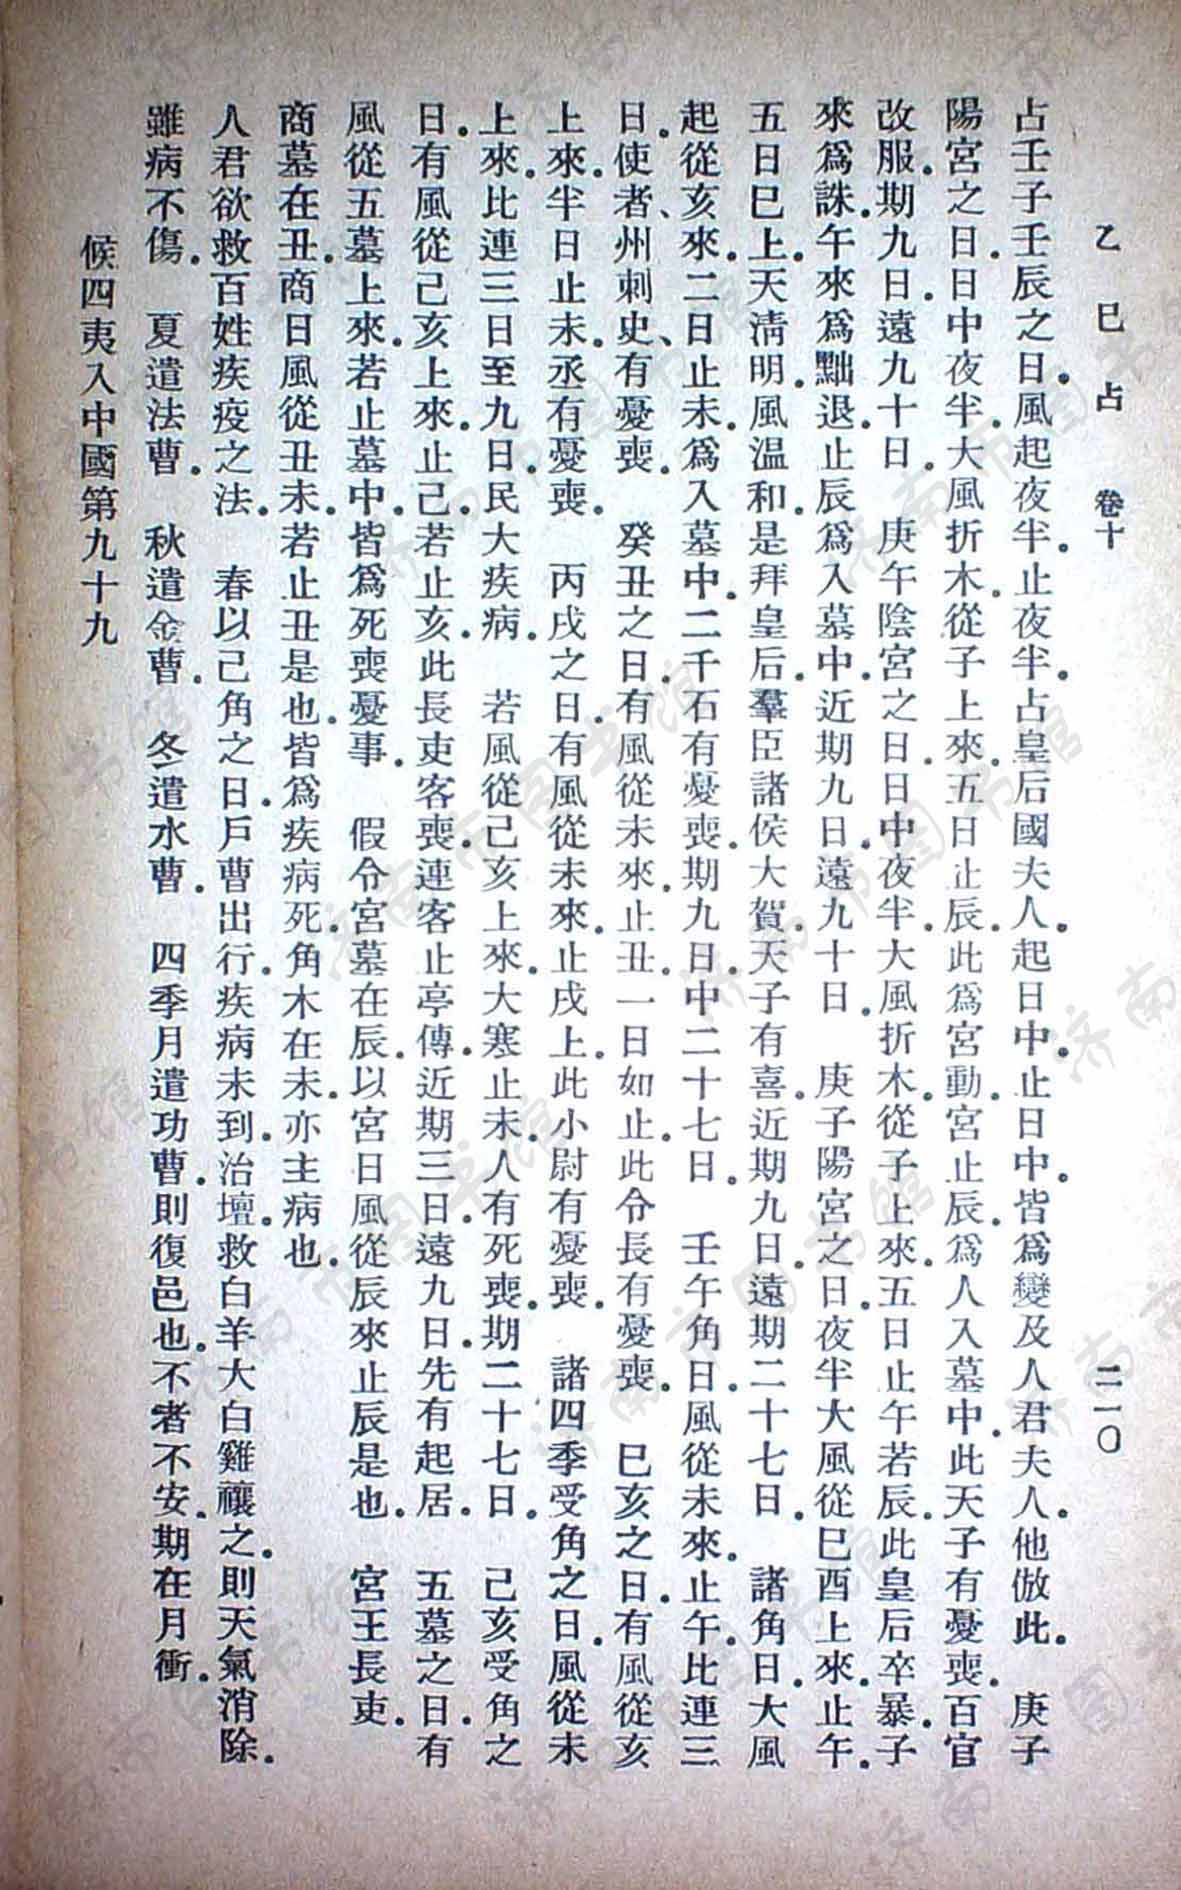 乙巳占　卷十　二一〇
占壬子壬辰之日．風起夜半．止夜半．占皇后國夫人．起日中．止日中．皆爲變及人君夫人．他倣此．　庚子
陽宮之日．日中夜半．大風折木．從子上來．五日止辰．此爲宮動．宮止辰．爲人入墓中．此天子有憂喪．百官
改服．期九日．遠九十日．　庚午陰宮之日．日中夜半．大風折木．從子上來．五日止午若辰．此皇后卒暴．子
來爲誅．午來爲黜退．止辰．爲入墓中．近期九日．遠九十日．　庚子陽宮之日．夜半大風從巳酉上來．止午．
五日巳上．天淸明．風温和．是拜皇后．羣臣諸侯大賀．天子有喜．近期九日．遠期二十七日．　諸角日．大風
起從亥來．二日止未．爲入墓中．二千石有憂喪．期九日．中二十七日．　壬午角日．風從未來．止午．比連三
日．使者、州刺史、有憂喪．　癸丑之日．有風從未來．止丑．一日如止．此令長有憂喪．　巳亥之日．有風從亥
上來．半日止未．丞有憂喪．　丙戌之日．有風從未來．止戌上．此小尉有憂喪．　諸四季受角之日．風從未
上來．比連三日至九日．民大疾病．　若風從己亥上來．大寒止未．人有死喪．期二十七日．　己亥受角之
日．有風從己亥上來．止己．若止亥．此長吏客喪．連客止亭傳．近期三日．遠九日．先有起居．　五墓之日．有
風從五墓上來．若止墓中．皆爲死喪憂事．　假令宮墓在辰．以宮日風從辰來止辰是也．　宮王長吏．
商墓在丑．商日風從丑未．若止丑是也．皆爲疾病死．角木在未．亦主病也．
人君欲救百姓疾疫之法．　春以己角之日．戶曹出行．疾病未到．治壇．救白羊大白雞禳之．則天氣消除．
雖病不傷．　夏遣法曹．　秋遣金曹．　冬遣水曹．　四季月遣功曹．則復邑也．不者不安．期在月衝．
候四夷入中國第九十九